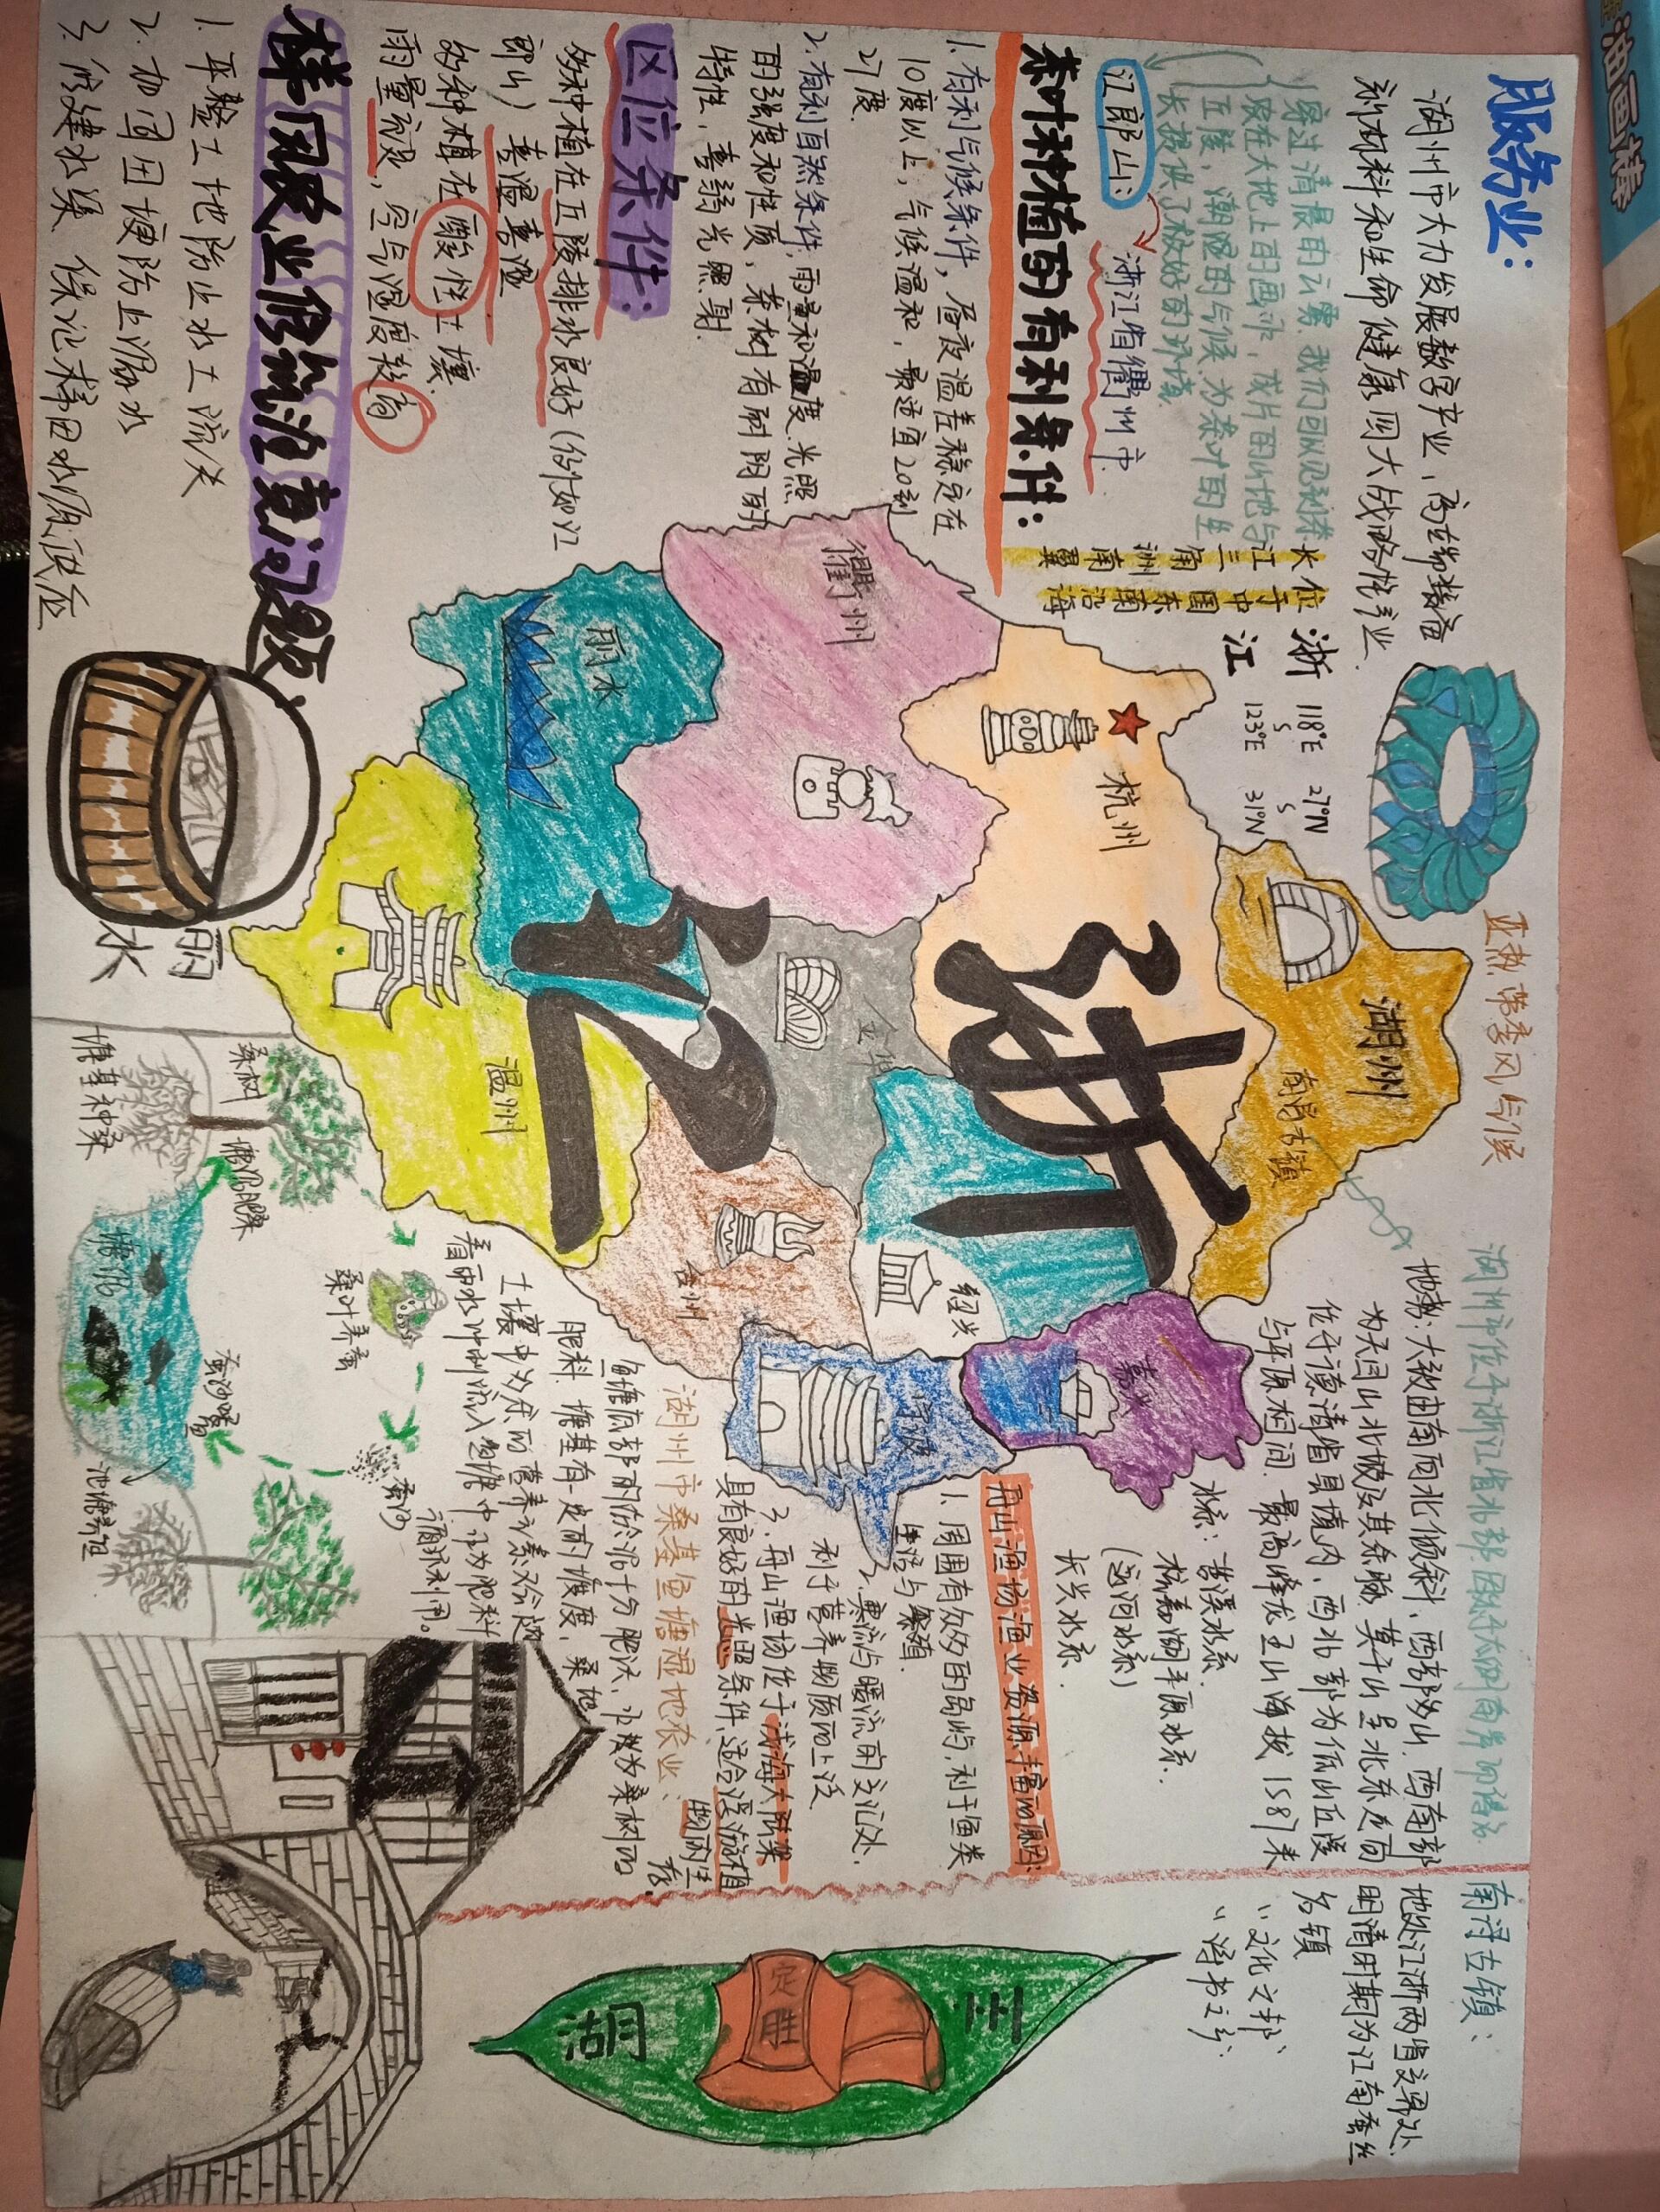 服务业：
湖州市大力发展数字产业、高端装备
新材料和生命健康四大战略性产业.
穿过清晨的云雾，我们可以见到茶
长在大地上的画中，成片的山地与
丘陵，潮湿的气候，为茶叶的生
长提供了极好的环境.
江郎山：
浙江省衢州市
茶叶种植的有利条件：
1. 有利气候条件，昼夜温差稳定在
10度以上，气候温和，最适宜20到
27度.
2. 有利自然条件，雨量和温度.光照
的强度和性质，茶树有耐阴的
特性，喜弱光照射.
区位条件：
的种植在丘陵排水良好（例如江
郎山） 喜温喜湿
的种植在酸性土壤
雨量充沛，空气湿度较高
梯田农业修筑注意问题
1. 平整土地防止水土流失
2. 加固田埂防止漏水
3. 修建水渠 保证梯田水源供应
长江三角洲南翼
位于中国东南沿海
浙江
118°E
123°E
27°N
31°N
亚热带季风气候
浙江
衢州
丽水
杭州
湖州
南浔古镇
金华
温州
台州
绍兴
嘉兴
宁波
丽水
湖州市位于浙江省北部
地势：大致由南向北倾斜，西部多山.西南部
为天目山北坡及其余脉，莫干山呈北东走向
位于德清县境内，西北部为低山丘陵
与平原相间.最高峰龙王山海拔1587米
水系：苕溪水系.
杭嘉湖平原水系.
（运河水系）
长兴水系.
舟山渔场渔业资源丰富的原因：
1. 周围有众多的岛屿，利于鱼类
生活与繁殖.
2. 寒流与暖流的交汇处，
利于营养物质的上泛
3. 舟山渔场位于浅海大陆架
具有良好的光照条件，适合浮游植
物的生存.
湖州市桑基鱼塘湿地农业：
鱼塘底部的淤泥十分肥沃，可被为桑树的
肥料.塘基有一定的坡度，桑地
土壤中多余的营养元素又会随
着雨水冲刷流入鱼塘中.作为肥料
循环利用。
桑树
塘基种桑
塘泥肥桑
塘泥
桑叶养蚕
蚕沙喂鱼
蚕沙
池塘养鱼
南浔古镇：
地处江浙两省交界处，
明清时期为江南蚕丝
名镇
“文化之邦”
“诗书之乡”
定胜
湖
油画棒